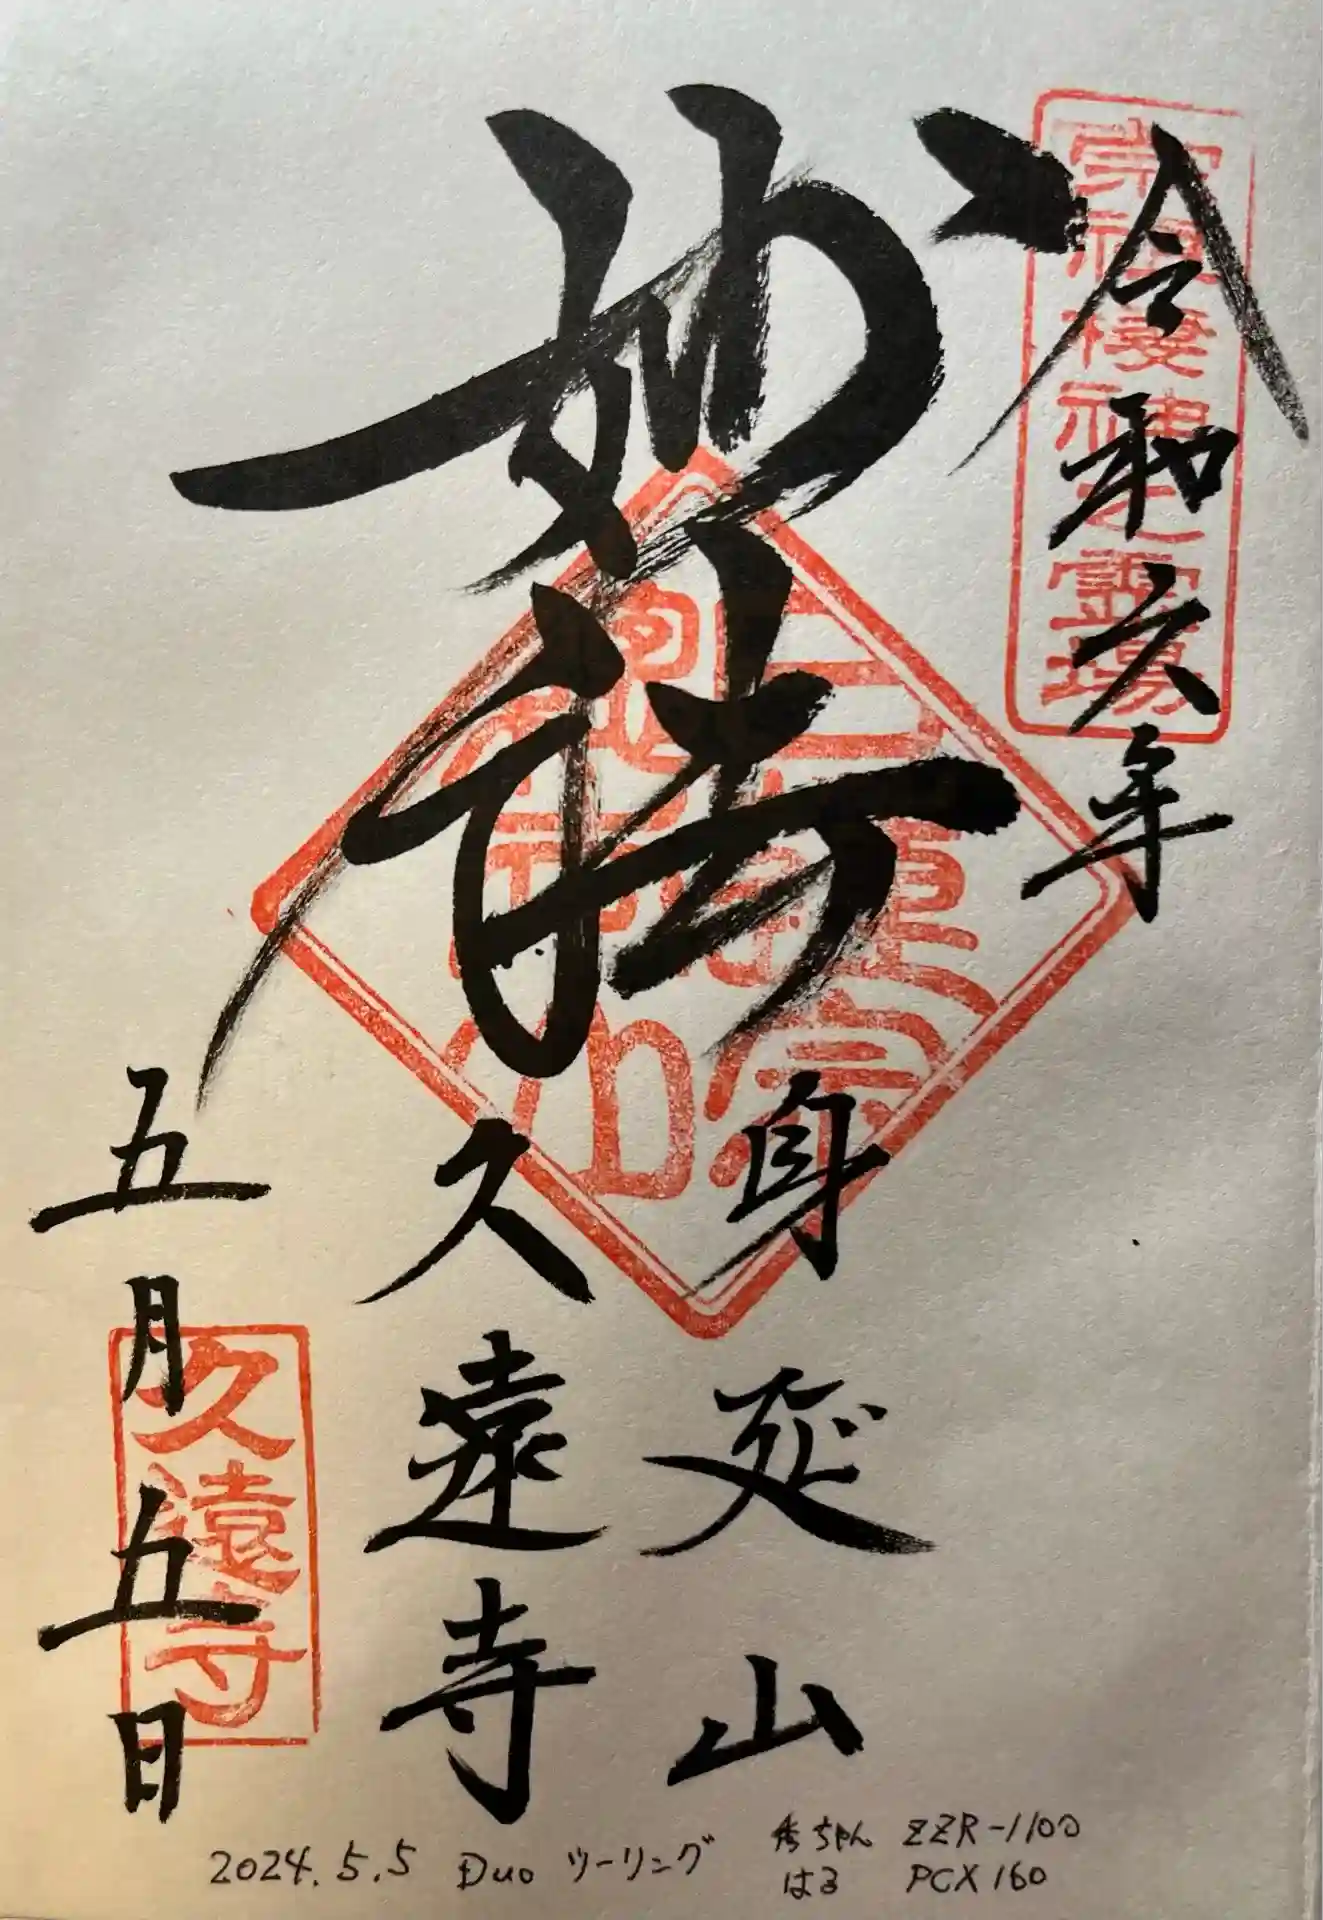 宗祖棲神之霊場
令和六年
妙法
日蓮宗
總本山
身延山
久遠寺
五月五日
久遠寺
2024.5.5 Duo ツーリング 秀ちゃん ZZR-1100
はる PCX160